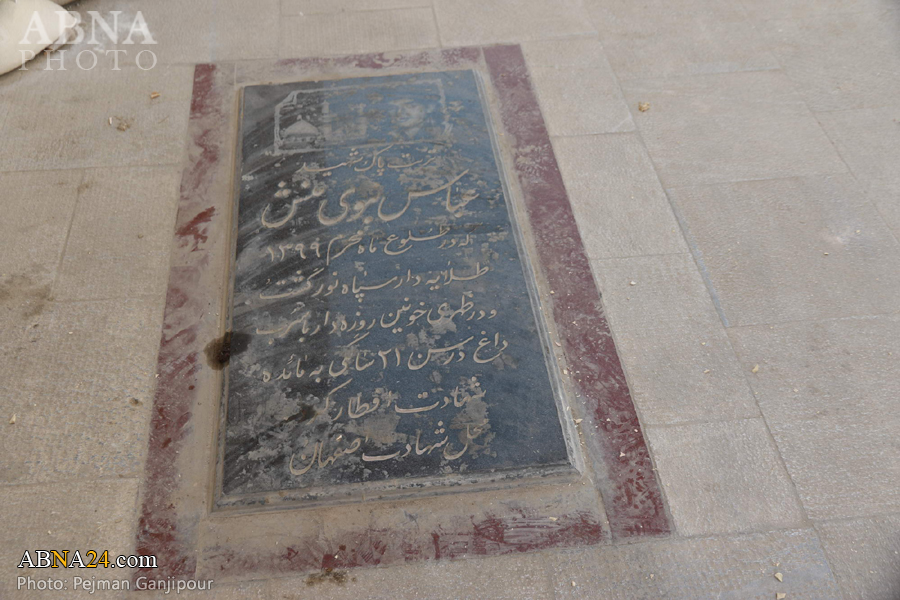 ABNA
PHOTO
تربت پاک شهید
عباس نبوی منش
که در طلوع ماه محرم ۱۳۹۹
طلایه دار سپاه نور گشت
و در ظهری خونین روزه دار با لب
داغ در سن ۲۱ سالگی به مائده
شهادت افطار کرد
محل شهادت اصفهان
ABNA24.com
Photo: Pejman Ganjipour